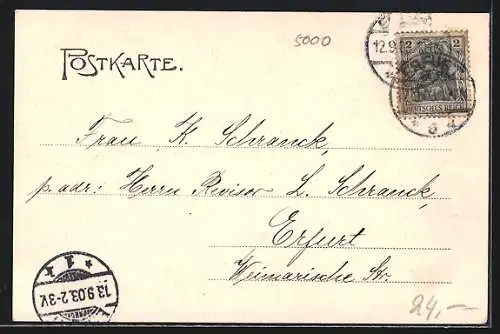 5000
12.9.
2 2
DEUTSCHES REICH
POSTKARTE.
Frau K. Schranck,
p. adr: Herrn Revisor L. Schranck,
Erfurt
Weimarische Str.
* 1 *
13.9.03.2-3V.
24,-